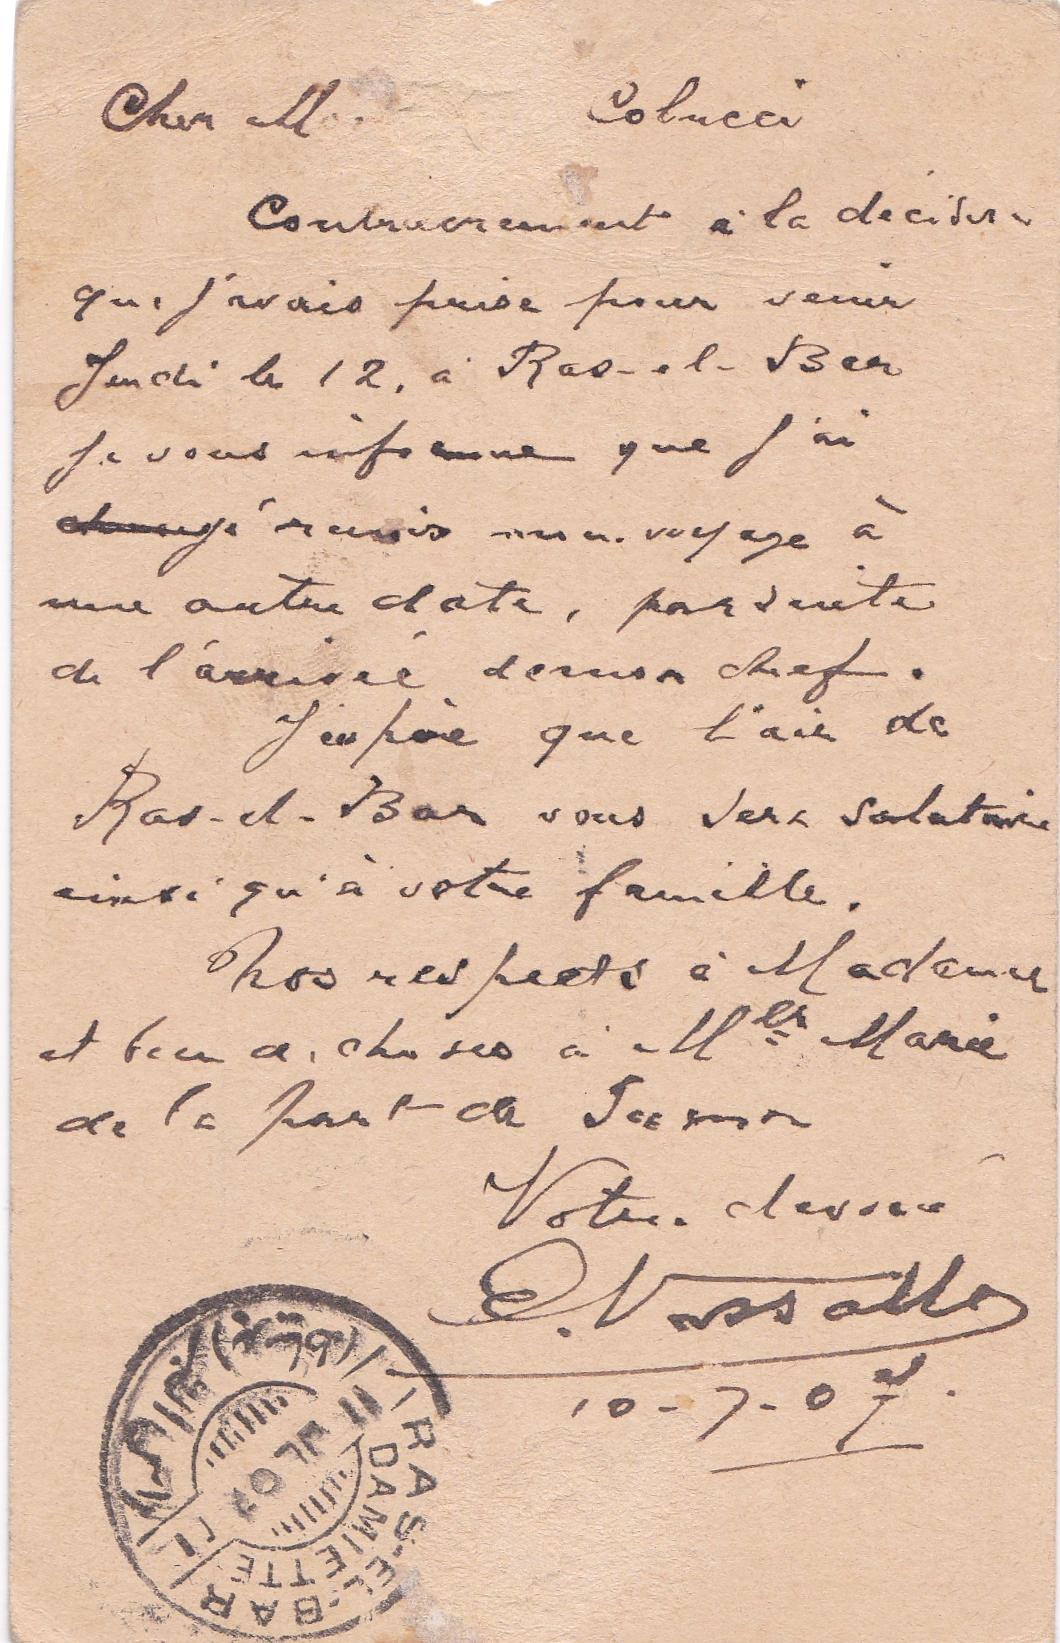 Cher M. Colucci
Contrairement à la décision
que j'avais prise pour venir
Jeudi le 12, à Ras-el-Bar
Je vous informe que j'ai
changé remis mon voyage à
une autre date, par suite
de l'arrivée de mon chef.
J'espère que l'air de
Ras-el-Bar vous sera salutaire
ainsi qu'à votre famille.
Nos respects à Madame
et bien de choses à Mlle Marie
de la part de
Votre dévoué
E. Vassallo
10-7-07
RAS-EL-BAR
DAMIETTE
11 JL 07